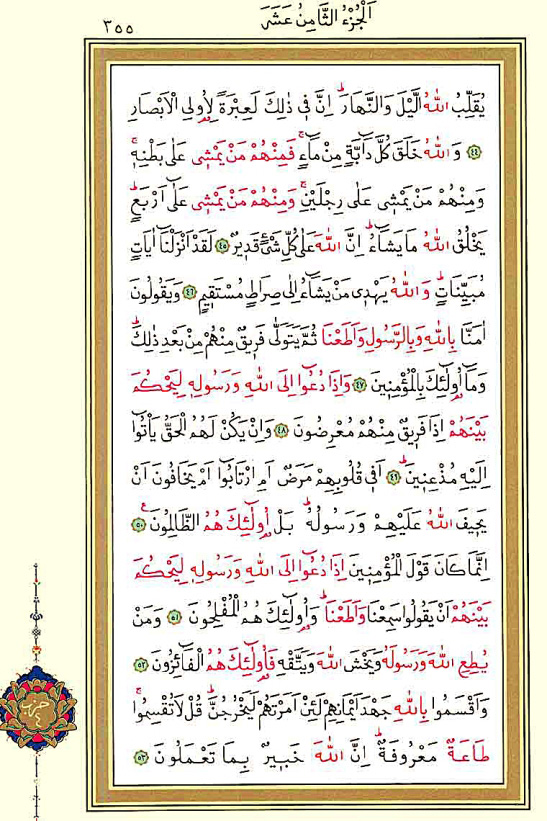 اَلْجُزْءُ الثَّامِنُ عَشَرَ
٣٥٥
يُقَلِّبُ اللّٰهُ الَّيْلَ وَالنَّهَارَۜ اِنَّ ف۪ي ذٰلِكَ لَعِبْرَةً لِاُو۬لِي الْاَبْصَارِ
﴿٤٤﴾ وَاللّٰهُ خَلَقَ كُلَّ دَٓابَّةٍ مِنْ مَٓاءٍۚ فَمِنْهُمْ مَنْ يَمْش۪ي عَلٰى بَطْنِه۪ۚ
وَمِنْهُمْ مَنْ يَمْش۪ي عَلٰى رِجْلَيْنِۚ وَمِنْهُمْ مَنْ يَمْش۪ي عَلٰٓى اَرْبَعٍۜ
يَخْلُقُ اللّٰهُ مَا يَشَٓاءُۜ اِنَّ اللّٰهَ عَلٰى كُلِّ شَيْءٍ قَد۪يرٌ ﴿٤٥﴾ لَقَدْ اَنْزَلْنَٓا اٰيَاتٍ
مُبَيِّنَاتٍۜ وَاللّٰهُ يَهْد۪ي مَنْ يَشَٓاءُ اِلٰى صِرَاطٍ مُسْتَق۪يمٍ ﴿٤٦﴾ وَيَقُولُونَ
اٰمَنَّا بِاللّٰهِ وَبِالرَّسُولِ وَاَطَعْنَا ثُمَّ يَتَوَلّٰى فَر۪يقٌ مِنْهُمْ مِنْ بَعْدِ ذٰلِكَۜ
وَمَٓا اُو۬لٰٓئِكَ بِالْمُؤْمِن۪ينَ ﴿٤٧﴾ وَاِذَا دُعُٓوا اِلَى اللّٰهِ وَرَسُولِه۪ لِيَحْكُمَ
بَيْنَهُمْ اِذَا فَر۪يقٌ مِنْهُمْ مُعْرِضُونَ ﴿٤٨﴾ وَاِنْ يَكُنْ لَهُمُ الْحَقُّ يَأْتُٓوا
اِلَيْهِ مُذْعِن۪ينَۜ ﴿٤٩﴾ اَف۪ي قُلُوبِهِمْ مَرَضٌ اَمِ ارْتَابُٓوا اَمْ يَخَافُونَ اَنْ
يَح۪يفَ اللّٰهُ عَلَيْهِمْ وَرَسُولُهُۜ بَلْ اُو۬لٰٓئِكَ هُمُ الظَّالِمُونَ۟ ﴿٥٠﴾
اِنَّمَا كَانَ قَوْلَ الْمُؤْمِن۪ينَ اِذَا دُعُٓوا اِلَى اللّٰهِ وَرَسُولِه۪ لِيَحْكُمَ
بَيْنَهُمْ اَنْ يَقُولُوا سَمِعْنَا وَاَطَعْنَاۜ وَاُو۬لٰٓئِكَ هُمُ الْمُفْلِحُونَ ﴿٥١﴾ وَمَنْ
يُطِعِ اللّٰهَ وَرَسُولَهُ وَيَخْشَ اللّٰهَ وَيَتَّقْهِ فَاُو۬لٰٓئِكَ هُمُ الْفَٓائِزُونَ ﴿٥٢﴾
وَاَقْسَمُوا بِاللّٰهِ جَهْدَ اَيْمَانِهِمْ لَئِنْ اَمَرْتَهُمْ لَيَخْرُجُنَّۜ قُلْ لَا تُقْسِمُواۚ
طَاعَةٌ مَعْرُوفَةٌۜ اِنَّ اللّٰهَ خَب۪يرٌ بِمَا تَعْمَلُونَ ﴿٥٣﴾
حزب
٤